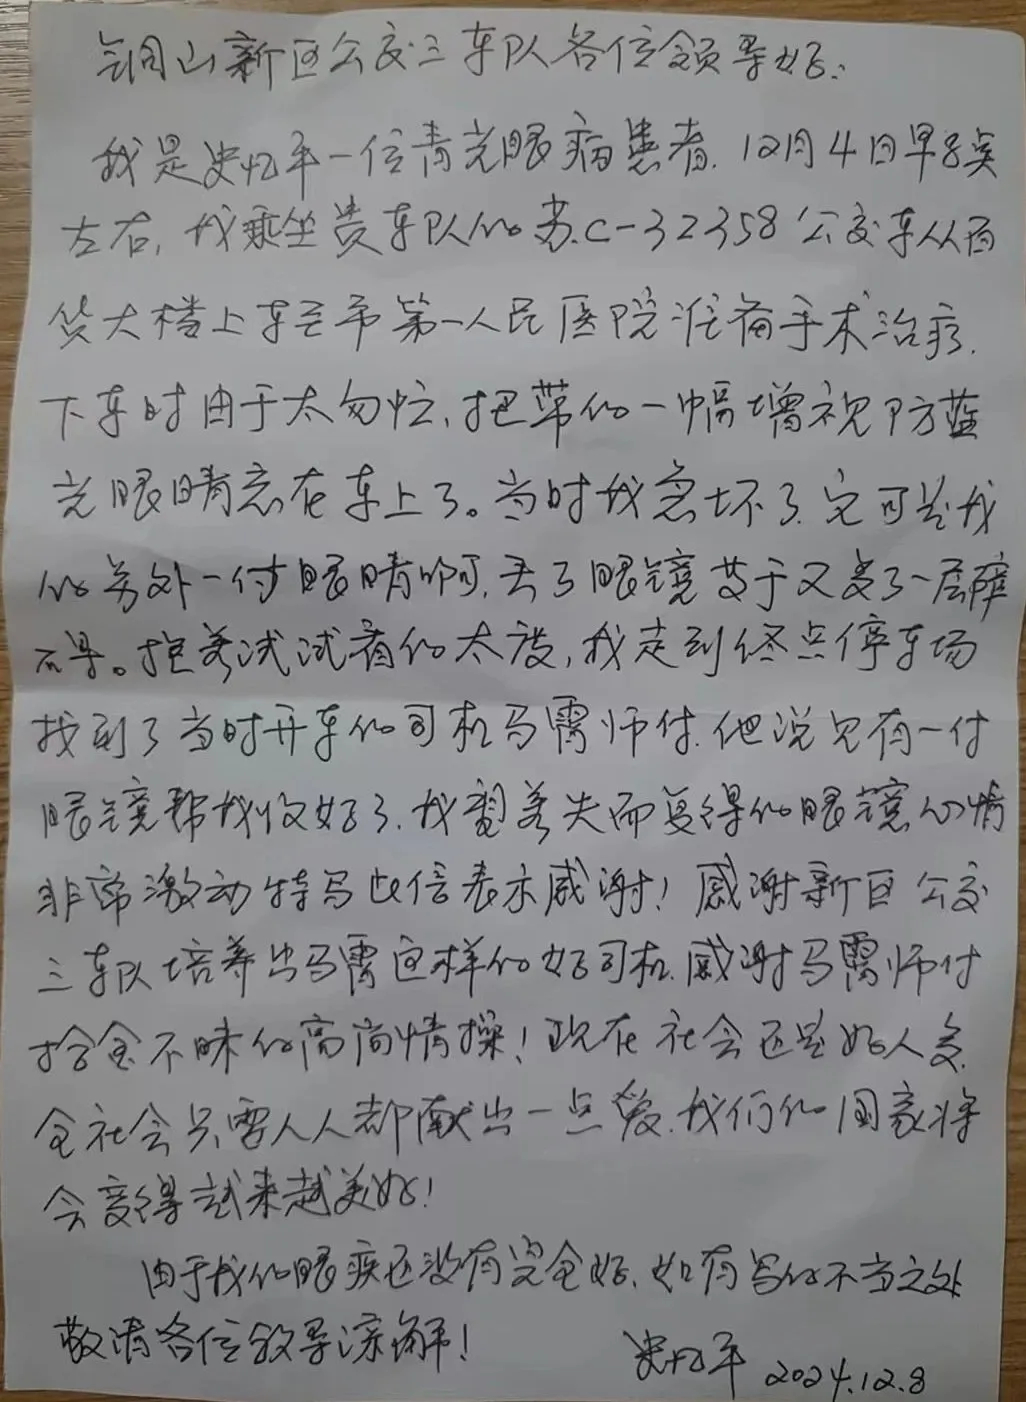 铜山新区公交三车队各位领导好:
我是史忆平一位青光眼病患者.12月4日早8点
左右,我乘坐贵车队的苏.C-32358公交车从百
货大楼上车至市第一人民医院准备手术治疗.
下车时由于太匆忙,把带的一幅增视防蓝
光眼睛忘在车上了。当时我急坏了.它可是我
的另外一付眼睛啊,丢了眼镜等于又多了一层障
碍。抱着试试看的太度,我走到终点停车场
找到了当时开车的司机马雷师付.他说只有一付
眼镜帮我收好了.我看着失而复得的眼镜心情
非常激动特写此信表示感谢!感谢新区公交
三车队培养出马雷这样的好司机.感谢马雷师付
拾金不昧的高尚情操!现在社会还是好人多.
全社会只要人人都献出一点爱.我们的国家将
会变得越来越美好!
由于我的眼疾还没有完全好.如有写的不当之处
敬请各位领导谅解!
史忆平 2024.12.8